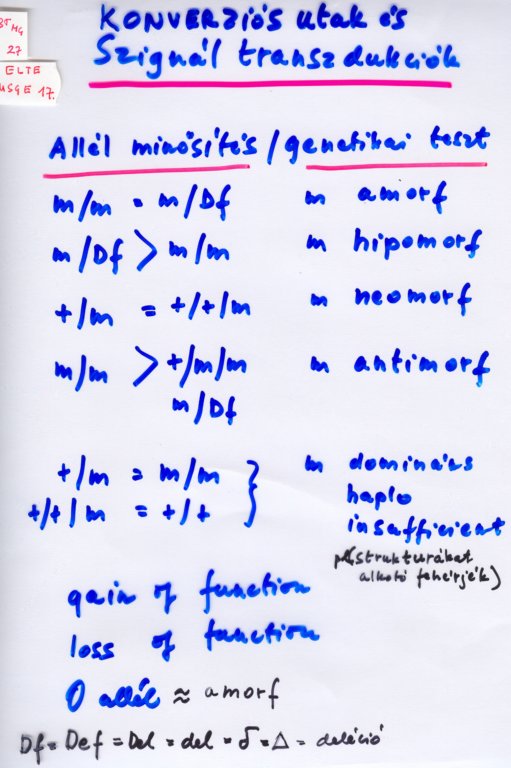 BT MG
27
ELTE
USGE 17.
KONVERZIÓS utak és
Szignál transzdukciók
Allél minősítés / genetikai teszt
m/m = m/Df m amorf
m/Df > m/m m hipomorf
+/m = +/+/m m neomorf
m/m > +/m/m m antimorf
m/Df
+/m = m/m m domináns
+/+/m = +/+ haplo
insafficient
(strukturákat
alkotó fehérjék)
gain of function
loss of function
O allél ≈ amorf
Df = Def = Del = del = δ = Δ = deléció